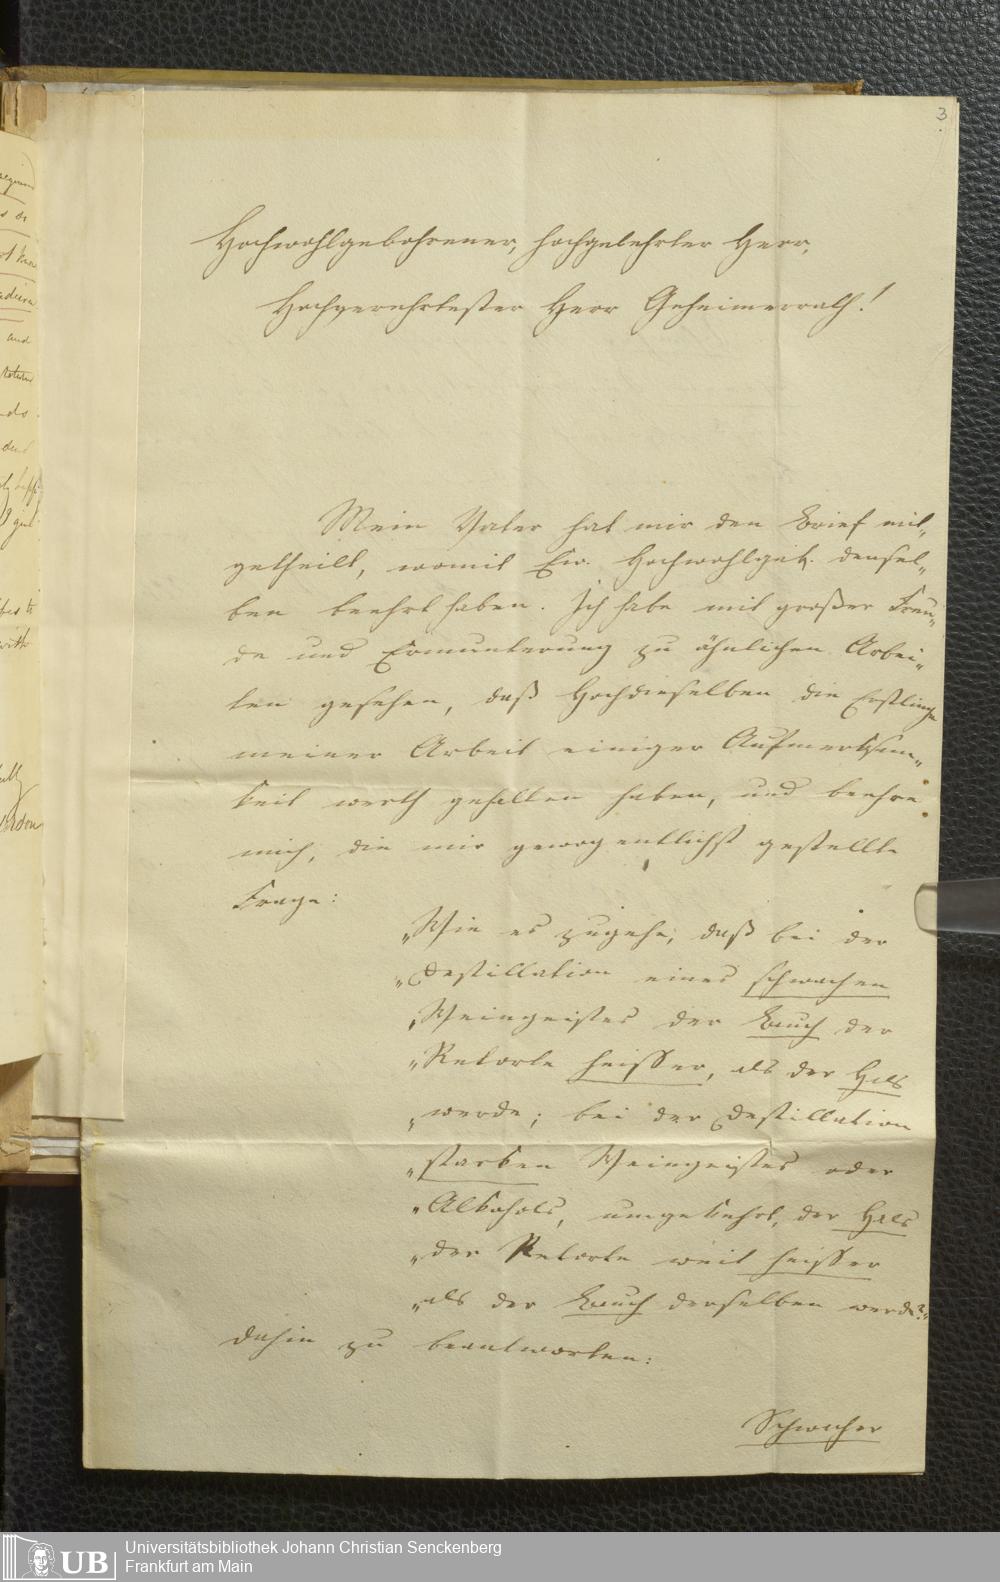 3
Hochwohlgebohrener, hochgelehrter Herr,
Hochverehrtester Herr Geheimerrath!
Mein Vater hat mir den Brief mit„
getheilt, womit Ew. Hochwohlgeb. densel„
ben beehrt haben. Ich habe mit großer Freu„
de und Ermunterung zu ähnlichen Arbei„
ten gesehen, daß Hochdieselben die Erstlinge
meiner Arbeit einiger Aufmerksam„
keit werth gehalten haben, und beehre
mich, die mir gewogentlichst gestellte
Frage:
„Wie es zugehe, daß bei der
„Destillation eines schwachen
„Weingeistes der Bauch der
„Retorte heisser, als der Hals
„werde; bei der Destillation
„starken Weingeistes oder
„Alkohols, umgekehrt, der Hals
„der Retorte weit heisser
„als der Bauch derselben werde?“
dahin zu beantworten:
Schwacher
UB
Universitätsbibliothek Johann Christian Senckenberg
Frankfurt am Main